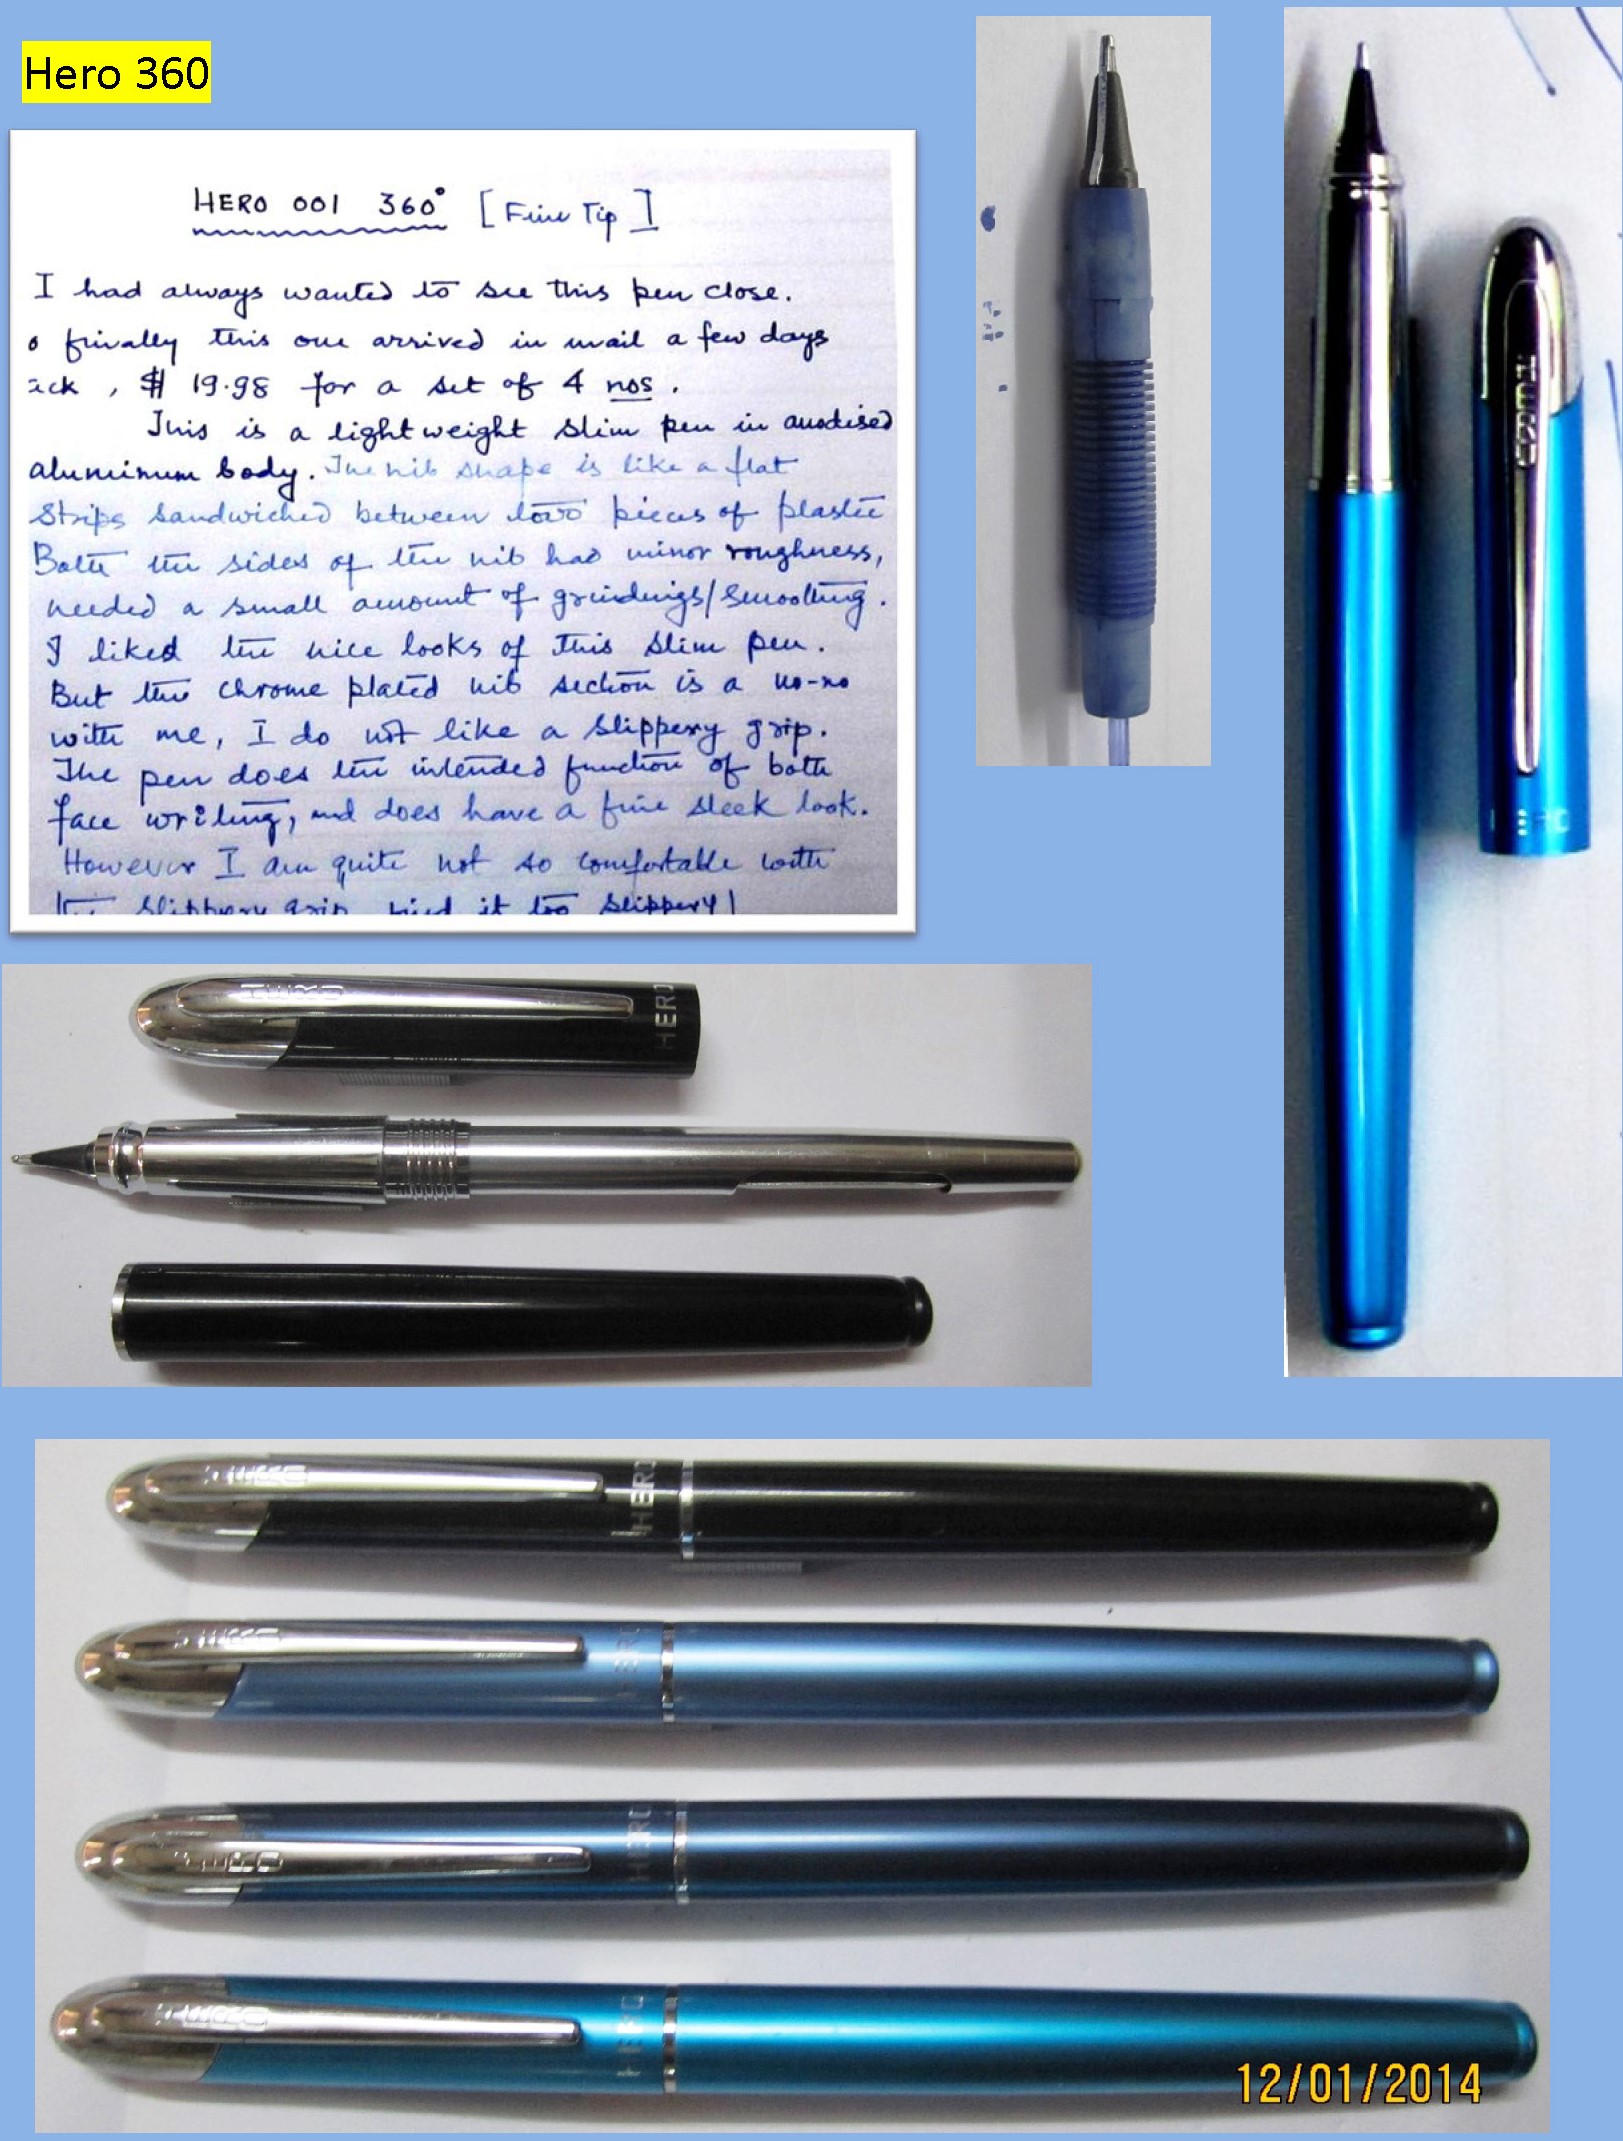 Hero 360
HERO 001 360° [Fine Tip]
I had always wanted to see this pen close.
o finally this one arrived in mail a few days
ack, $ 19.98 for a set of 4 nos.
This is a lightweight slim pen in anodised
aluminum body. The nib shape is like a flat
strips sandwiched between two pieces of plastic
Both the sides of the nib had minor roughness,
needed a small amount of grindings/smoothing.
I liked the nice looks of this slim pen.
But the chrome plated nib section is a no-no
with me, I do not like a slippery grip.
The pen does the intended function of both
face writing, and does have a fine sleek look.
However I am quite not so comfortable with
the slippery grip, find it too slippery!
HERO
HERO
HERO
HERO
HERO
HERO
HERO
HERO
HERO
HERO
HERO
HERO
12/01/2014